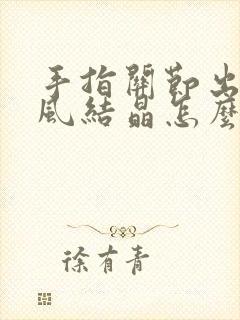 手指關節出
風結晶怎麼
徐有青